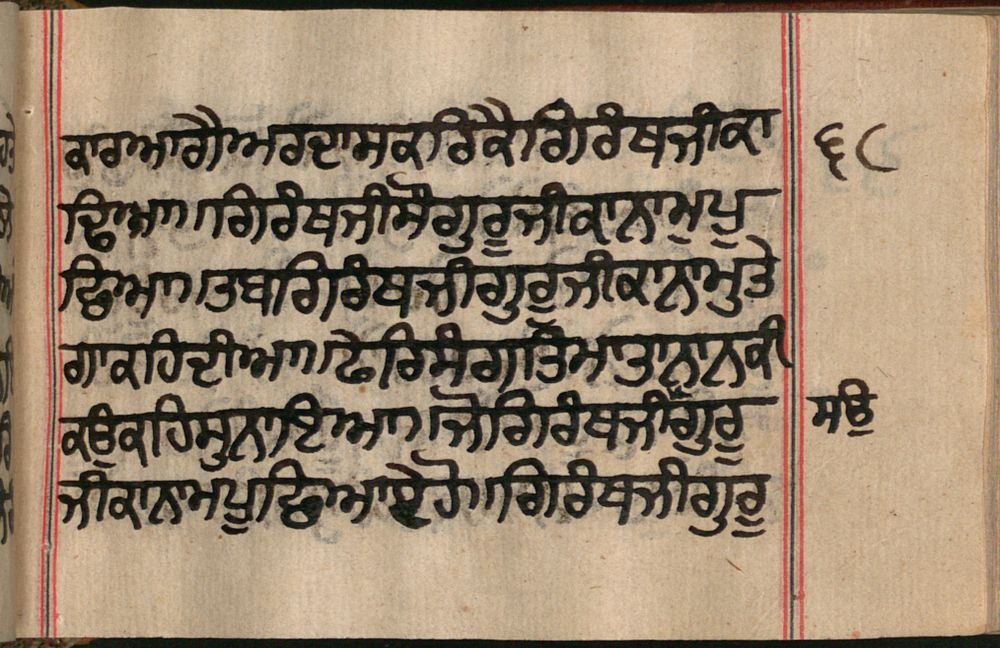 ਕਾਰਆਗੈਅਰਦਾਸਕਰਿਕੈਗਿਰੰਥਜੀਕਾ
ਢਿਆ॥ਗਿਰੰਥਜੀਸੌਗੁਰੂਜੀਕਾਨਾਮੁਪੁ
ਛਿਆ॥ਤਬਗਿਰੰਥਜੀਗੁਰੁਜੀਕਾਨਾਮੁਤੇ
ਗਾਕਹਿਦੀਆ॥ਫੇਰਿਸੰਗਤਿਮਾਤਾਨਾਨਕੀ
ਕਉਕਹਿਸੁਨਾਇਆ॥ਜੋਗਿਰੰਥਜੀਗੁਰੂ
ਜੀਕਾਨਾਮਪੂਛਿਆਏਹੋ॥ਗਿਰੰਥਜੀਗੁਰੂ
੬੮
ਸਉ